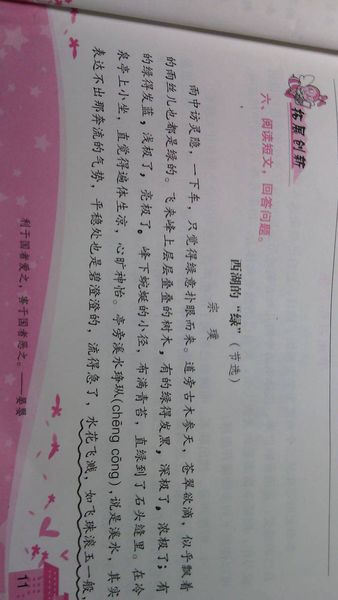 拓展创新
六、阅读短文，回答问题。
西湖的“绿”（节选）
宗 璞
雨中访灵隐，一下车，只觉得绿意扑眼而来。道旁古木参天，苍翠欲滴，似乎飘着
的雨丝儿也都是绿的。飞来峰上层层叠叠的树木，有的绿得发黑，深极了，浓极了；有
的绿得发蓝，浅极了，亮极了。峰下蜿蜒的小径，布满青苔，直绿到了石头缝里。在冷
泉亭上小坐，直觉得遍体生凉，心旷神怡。亭旁溪水琤瑽(chēng cōng)，说是溪水，其实
表达不出那奔流的气势，平稳处也是碧澄澄的，流得急了，水花飞溅，如飞珠滚玉一般
利于国者爱之，害于国者恶之。——晏婴
11